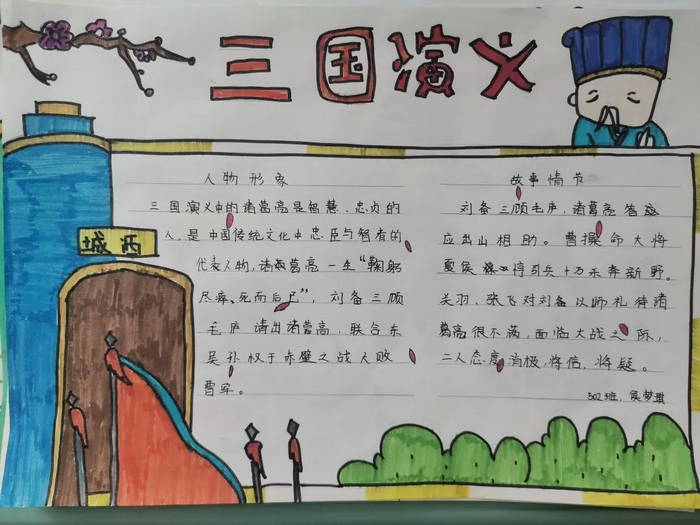 三国演义
西城
人物形象
三国演义中的诸葛亮是智慧、忠贞的
人,是中国传统文化中忠臣与智者的
代表人物,诸葛亮一生“鞠躬
尽瘁、死而后已”,刘备三顾
毛庐请出诸葛亮,联合东
吴孙权于赤壁之战大败
曹军。
故事情节
刘备三顾毛庐,诸葛亮答应
应出山相助。曹操命大将
夏侯惇引兵十万杀奔新野。
关羽、张飞对刘备以师礼待诸
葛亮很不满,面临大战之际,
二人态度消极,将信,将疑。
302班,吴梦琪